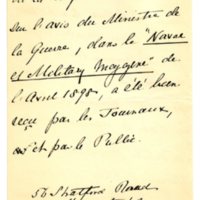 Sur l'avis du Ministre de
la Guerre, dans le "Naval
et Military Magazine" de
l'Avril 1898, a été bien
reçu par les Journaux,
et par le Public.
56 Stratford Road